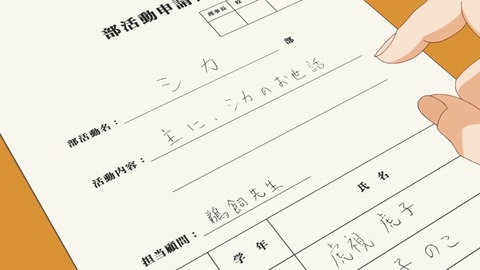 部活動申請
理事長 校
部活動名： シカ 部
活動内容： 主に、シカのお世話
担当顧問： 鵜飼先生
学年 氏名
虎視 虎子
子 のこ